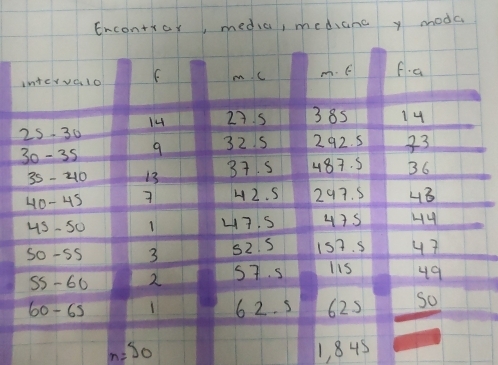 Encontrar, media, mediana y moda
intervalo f m.c m.f f.a
25-30 14 27.5 385 14
30-35 9 32.5 292.5 23
35-40 13 37.5 487.5 36
40-45 7 42.5 297.5 43
45-50 1 47.5 475 44
50-55 3 52.5 157.5 47
55-60 2 57.5 115 49
60-65 1 62.5 625 50
n=50 1,845